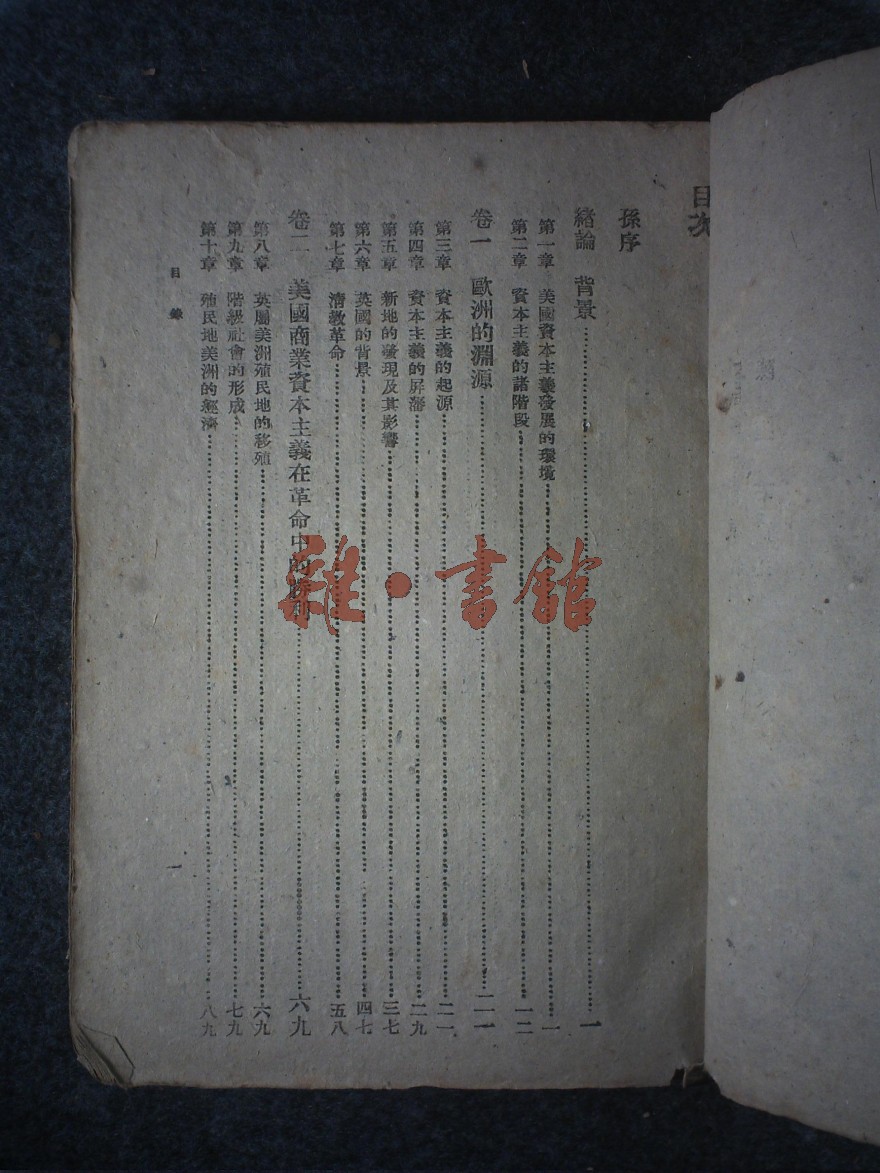 目次
孫序
緒論 背景……一
第一章 美國資本主義發展的環境……一
第二章 資本主義的諸階段……一二
卷一 歐洲的淵源……二一
第三章 資本主義的起源……二一
第四章 資本主義的屏藩……二九
第五章 新地的發現及其影響……三七
第六章 英國的背景……四七
第七章 清教革命……五八
卷二 美國商業資本主義在革命中的勝利……六九
第八章 英屬美洲殖民地的移殖……六九
第九章 階級社會的形成……七九
第十章 殖民地美洲的經濟……八九
目錄
一
雜·書館